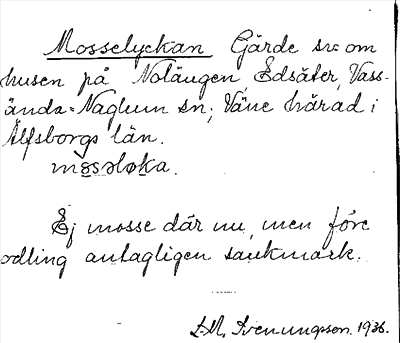 Mosselyckan Gärde sv om
husen på Nolängen, Edsäter, Vass-
ända-Naglum sn; Väne härad i
Älfsborgs län.
Ej mosse där nu, men före
odling antagligen sankmark.
1936.